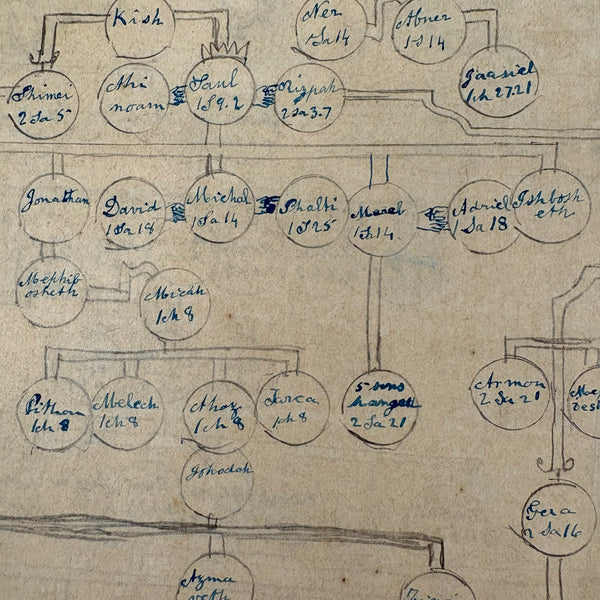 Kish
Ner
1 Sa 14
Abner
1 S 14
Jaasiel
1 ch 27.21
Shimei
2 Sa 5
Ahi
noam
Saul
1 S 9.2
Rizpah
2 Sa 3.7
Jonathan
David
1 Sa 18
Michal
1 Sa 14
Phalti
1 S 25
Merab
1 S 14
Adriel
1 Sa 18
Ishbosh
eth
Mephib
osheth
Micah
1 ch 8
Pithon
1 ch 8
Melech
1 ch 8
Ahaz
1 ch 8
Tarea
1 ch 8
5 sons
hanged
2 Sa 21
Armon
2 Sa 21
Jehodah
Gera
2 Sa 16
Azma
veth